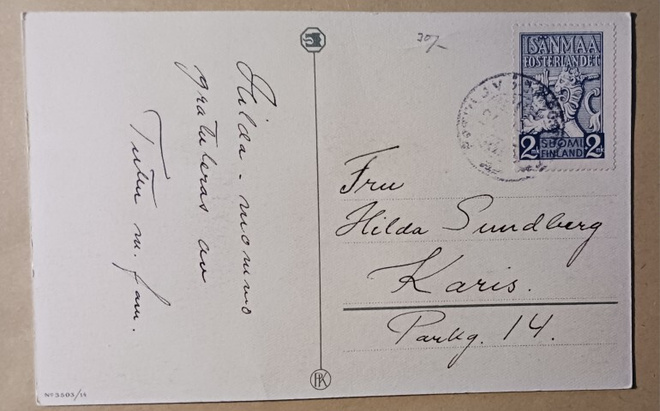 Hilda-mommo
gratuleras av
Tutu m. fam.
30/-
ISÄNMAA
FOSTERLANDET
SUOMI
2 FINLAND 2
Fru
Hilda Sundberg
Karis.
Parkg. 14.
HK
No 3803/14